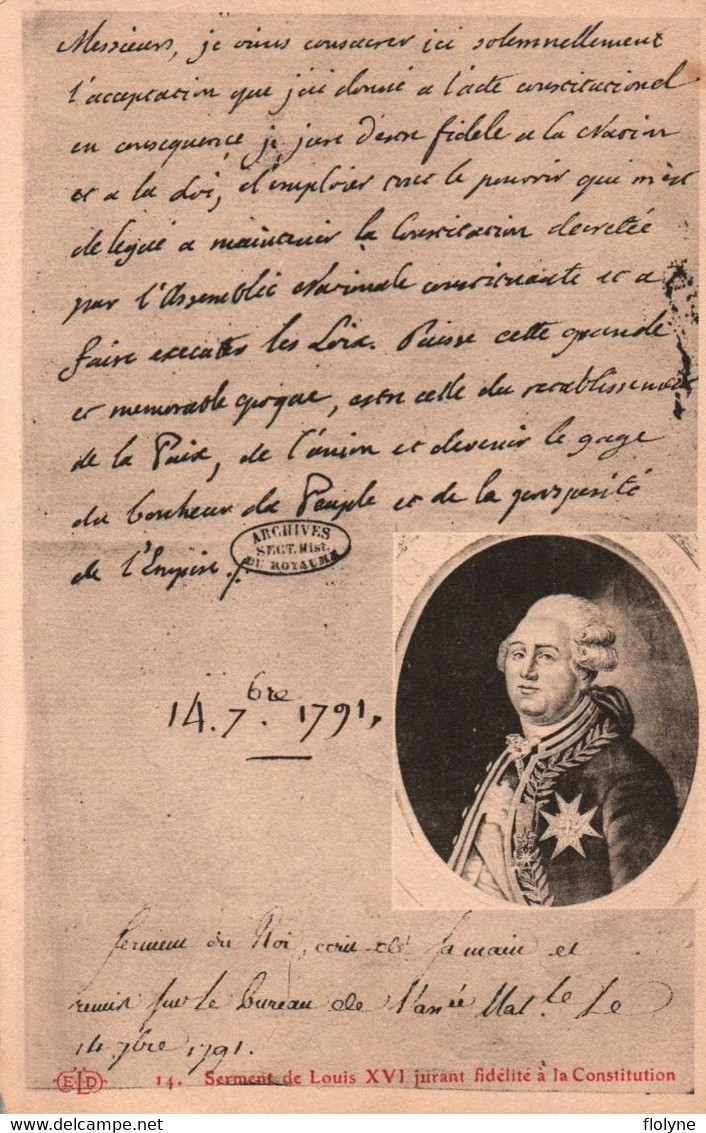 Messieurs, je viens consacrer ici solemnellement
l'acceptation que j'ai donné a l'acte constitutionel
en consequence je jure d'estre fidele a la Nation
et a la Loi, d'emploier tout le pouvoir qui m'est
delegué a maintenir la Constitution decretée
par l'Assemblée Nationale constituante et a
faire executer les Loix. Puisse cette grande
et memorable epoque, estre celle du retablissement
de la Paix, de l'union et devenir le gage
du bonheur du Peuple et de la prosperité
de l'Empire.
ARCHIVES
SECT. HIST.
DU ROYAUME
14. 7bre. 1791.
Serment du Roi, écrit de sa main et
remis sur le bureau de l'assée Natle Le
14 7bre 1791.
ELD
14. Serment de Louis XVI jurant fidélité à la Constitution
flolyne